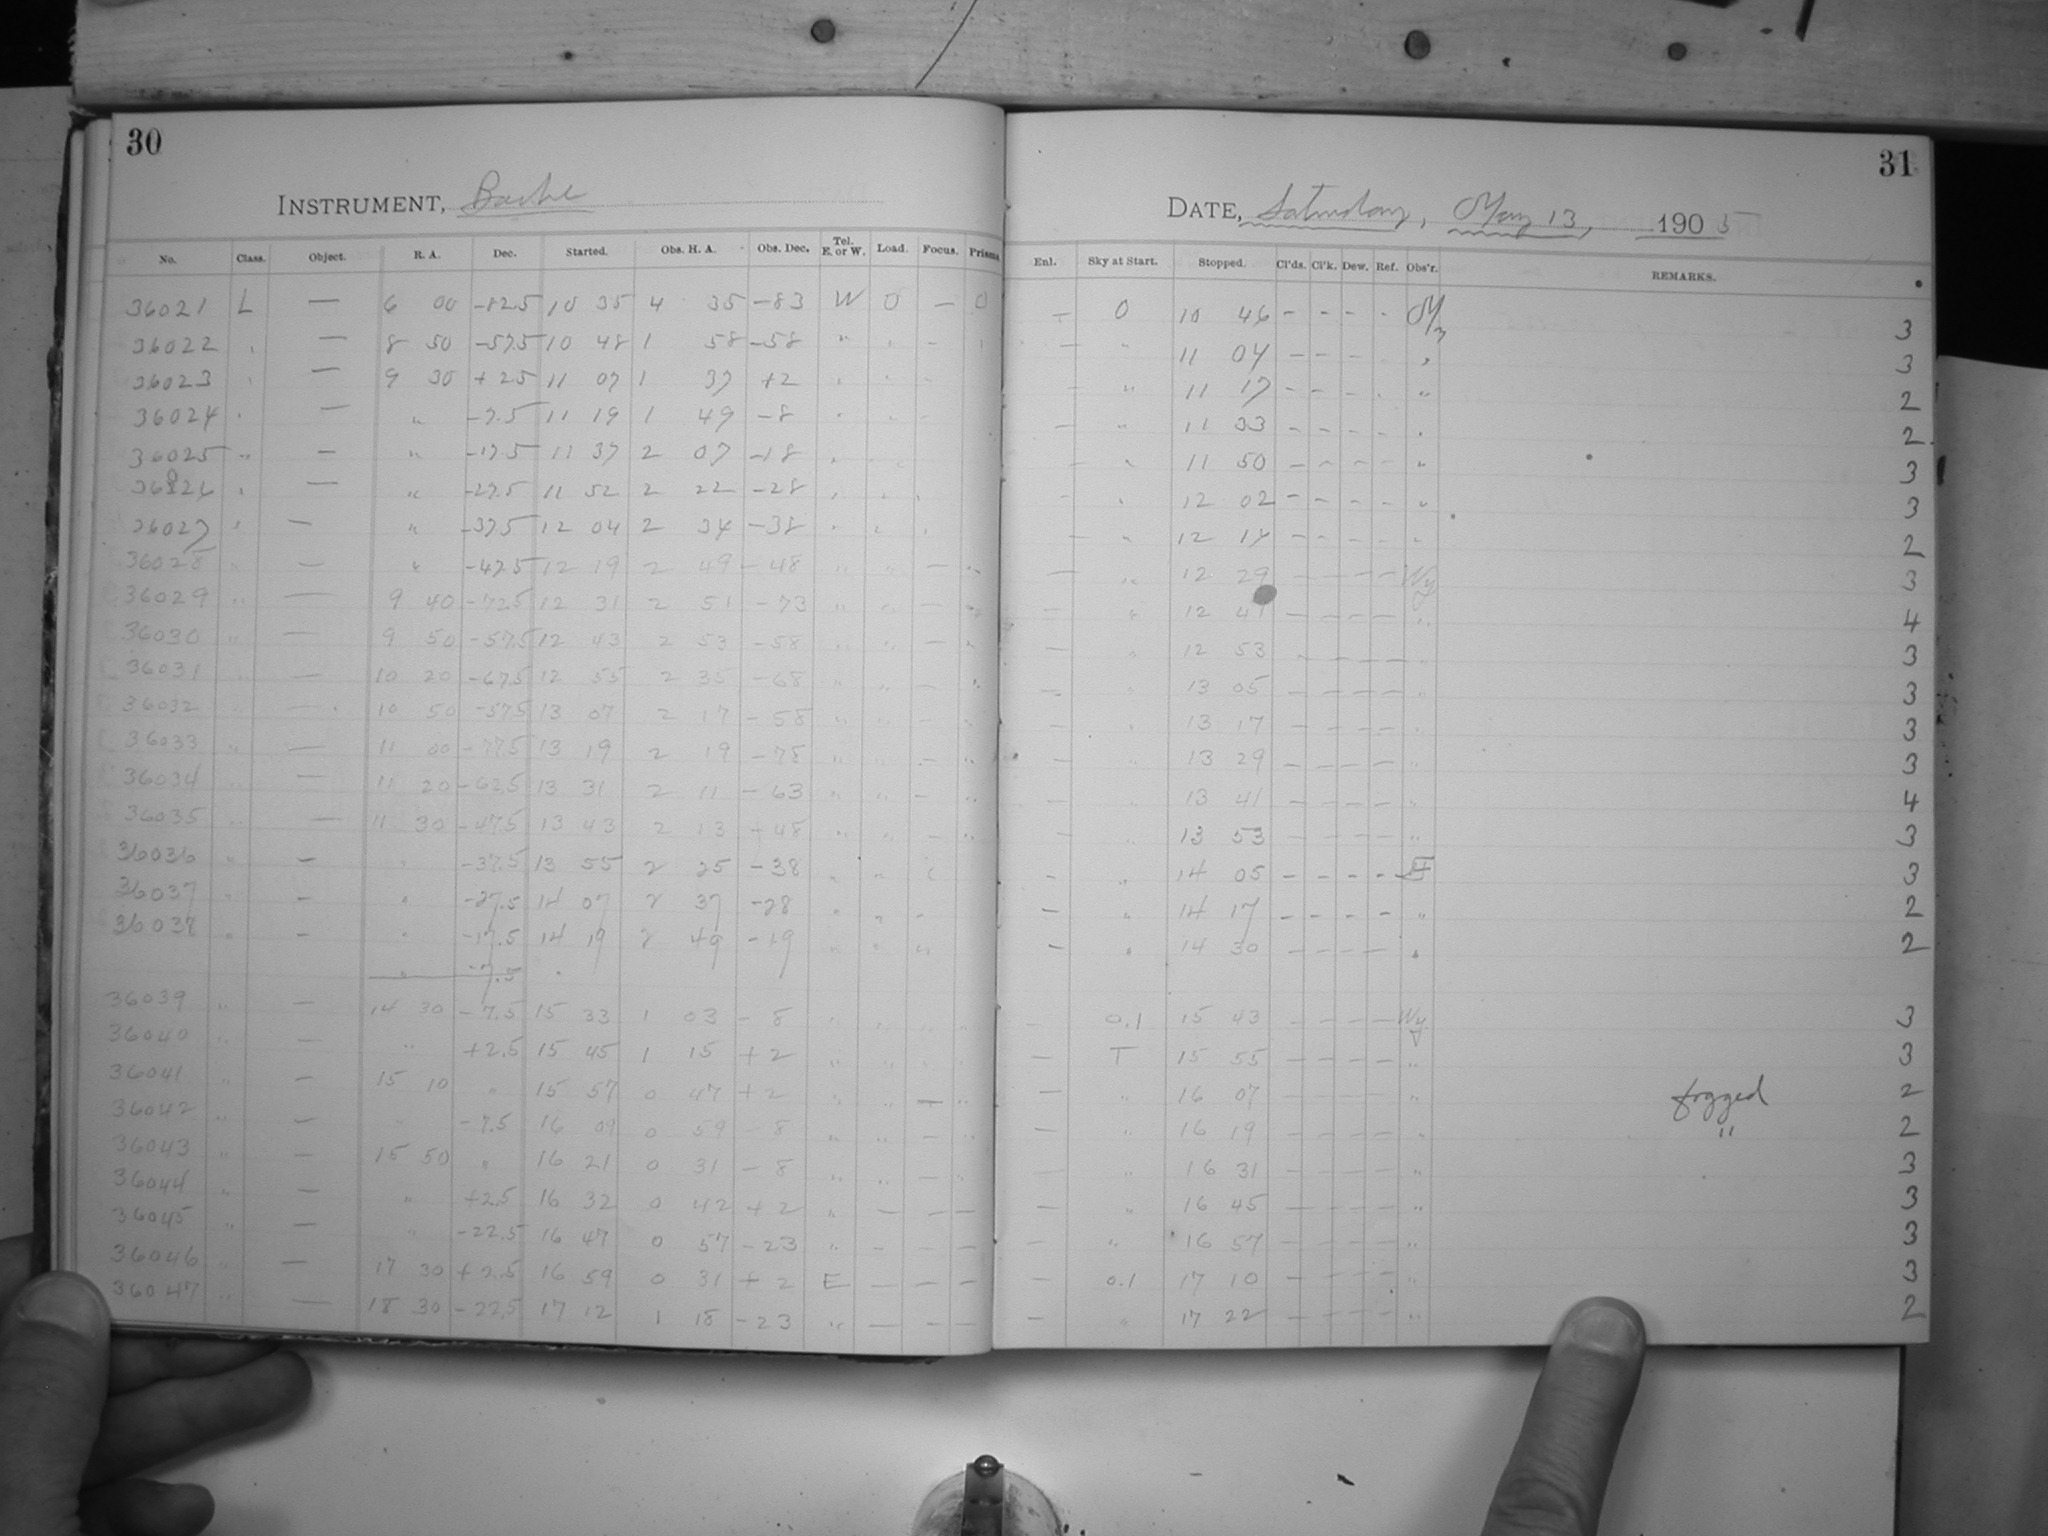 30
INSTRUMENT, Bache
No. Class. Object. R. A. Dec. Started. Obs. H. A. Obs. Dec. Tel. E. or W. Load. Focus. Prisms
36021 L — 6 00 -82.5 10 35 4 35 -83 W 0 — 0
36022 " — 8 50 -57.5 10 48 1 58 -58 " " - "
36023 " — 9 30 +2.5 11 07 1 37 +2 " " -
36024 " — " -7.5 11 19 1 49 -8 " " -
36025 " — " -17.5 11 37 2 07 -18 " "
36026 " — " -27.5 11 52 2 22 -28 " " "
36027 " — " -37.5 12 04 2 34 -38 " " "
36028 " — " -47.5 12 19 2 49 -48 " " — "
36029 " — 9 40 -72.5 12 31 2 51 -73 " " — "
36030 " — 9 50 -57.5 12 43 2 53 -58 " " — "
36031 " — 10 20 -67.5 12 55 2 35 -68 " " — "
36032 " — 10 50 -57.5 13 07 2 17 -58 " " — "
36033 " — 11 00 -77.5 13 19 2 19 -78 " " — "
36034 " — 11 20 -62.5 13 31 2 11 -63 " " — "
36035 " — 11 30 -47.5 13 43 2 13 -48 " " — "
36036 " — " -37.5 13 55 2 25 -38 " "
36037 " — " -27.5 14 07 2 37 -28 " " -
36038 " — " -17.5 14 19 2 49 -19 " " "
" -7.5
36039 " — 14 30 -7.5 15 33 1 03 -8 " " " "
36040 " — " +2.5 15 45 1 15 +2 " " " "
36041 " — 15 10 " 15 57 0 47 +2 " " — "
36042 " — " -7.5 16 09 0 59 -8 " " — "
36043 " — 15 50 " 16 21 0 31 -8 " " — "
36044 " — " +2.5 16 32 0 42 +2 " — — —
36045 " — " -22.5 16 47 0 57 -23 " — — —
36046 " — 17 30 +2.5 16 59 0 31 +2 E — — —
36047 " — 18 30 -22.5 17 12 1 18 -23 " — — —
31
DATE, Saturday, May 13, 1905
Enl. Sky at Start. Stopped. Cl'ds. Cl'k. Dew. Ref. Obs'r. REMARKS.
— 0 10 46 - - - - 3
— " 11 04 - - - " 3
— " 11 17 - - - " 2
— " 11 33 - - - - " 2
— " 11 50 - - - - " 3
— " 12 02 - - - - " 3
— " 12 18 - - - - " 2
— " 12 29 - - - - Wy 3
— " 12 41 - - - - " 4
— " 12 53 - - - - " 3
— " 13 05 - - - - " 3
— " 13 17 - - - - " 3
— " 13 29 - - - - " 3
— " 13 41 - - - - " 4
— " 13 53 - - - - " 3
— " 14 05 - - - - 3
— " 14 17 - - - - " 2
— " 14 30 - - - - " 2
— 0.1 15 43 - - - - Wy 3
— T 15 55 - - - - " 3
— " 16 07 - - - - " fogged 2
— " 16 19 - - - - " " 2
— " 16 31 - - - - " 3
— " 16 45 - - - - " 3
— " 16 57 - - - - " 3
— 0.1 17 10 - - - - " 3
— " 17 22 - - - - " 2